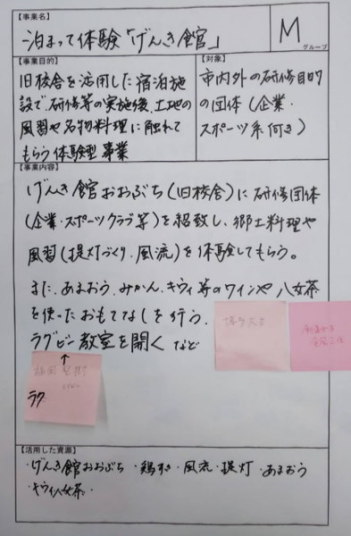 【事業名】
泊まって体験「げんき館」
M
グループ
【事業目的】
旧校舎を活用した宿泊施
設で研修等の実施後、土地の
風習や名物料理に触れて
もらう体験型事業
【対象】
市内外の研修目的
の団体(企業・
スポーツ系 何き)
【事業内容】
げんき館おおぶち(旧校舎)に研修団体
(企業・スポーツクラブ等)を招致し、郷土料理や
風習(提灯づくり、風流)を体験してもらう。
また、あまおう、みかん、キウイ等のワインや八女茶
を使ったおもてなしを行う。
ラグビー教室を開く など
↑
ラグ
【活用した資源】
・げんき館おおぶち ・鶏すき ・風流 ・提灯 ・あまおう
・キウイ 八女茶